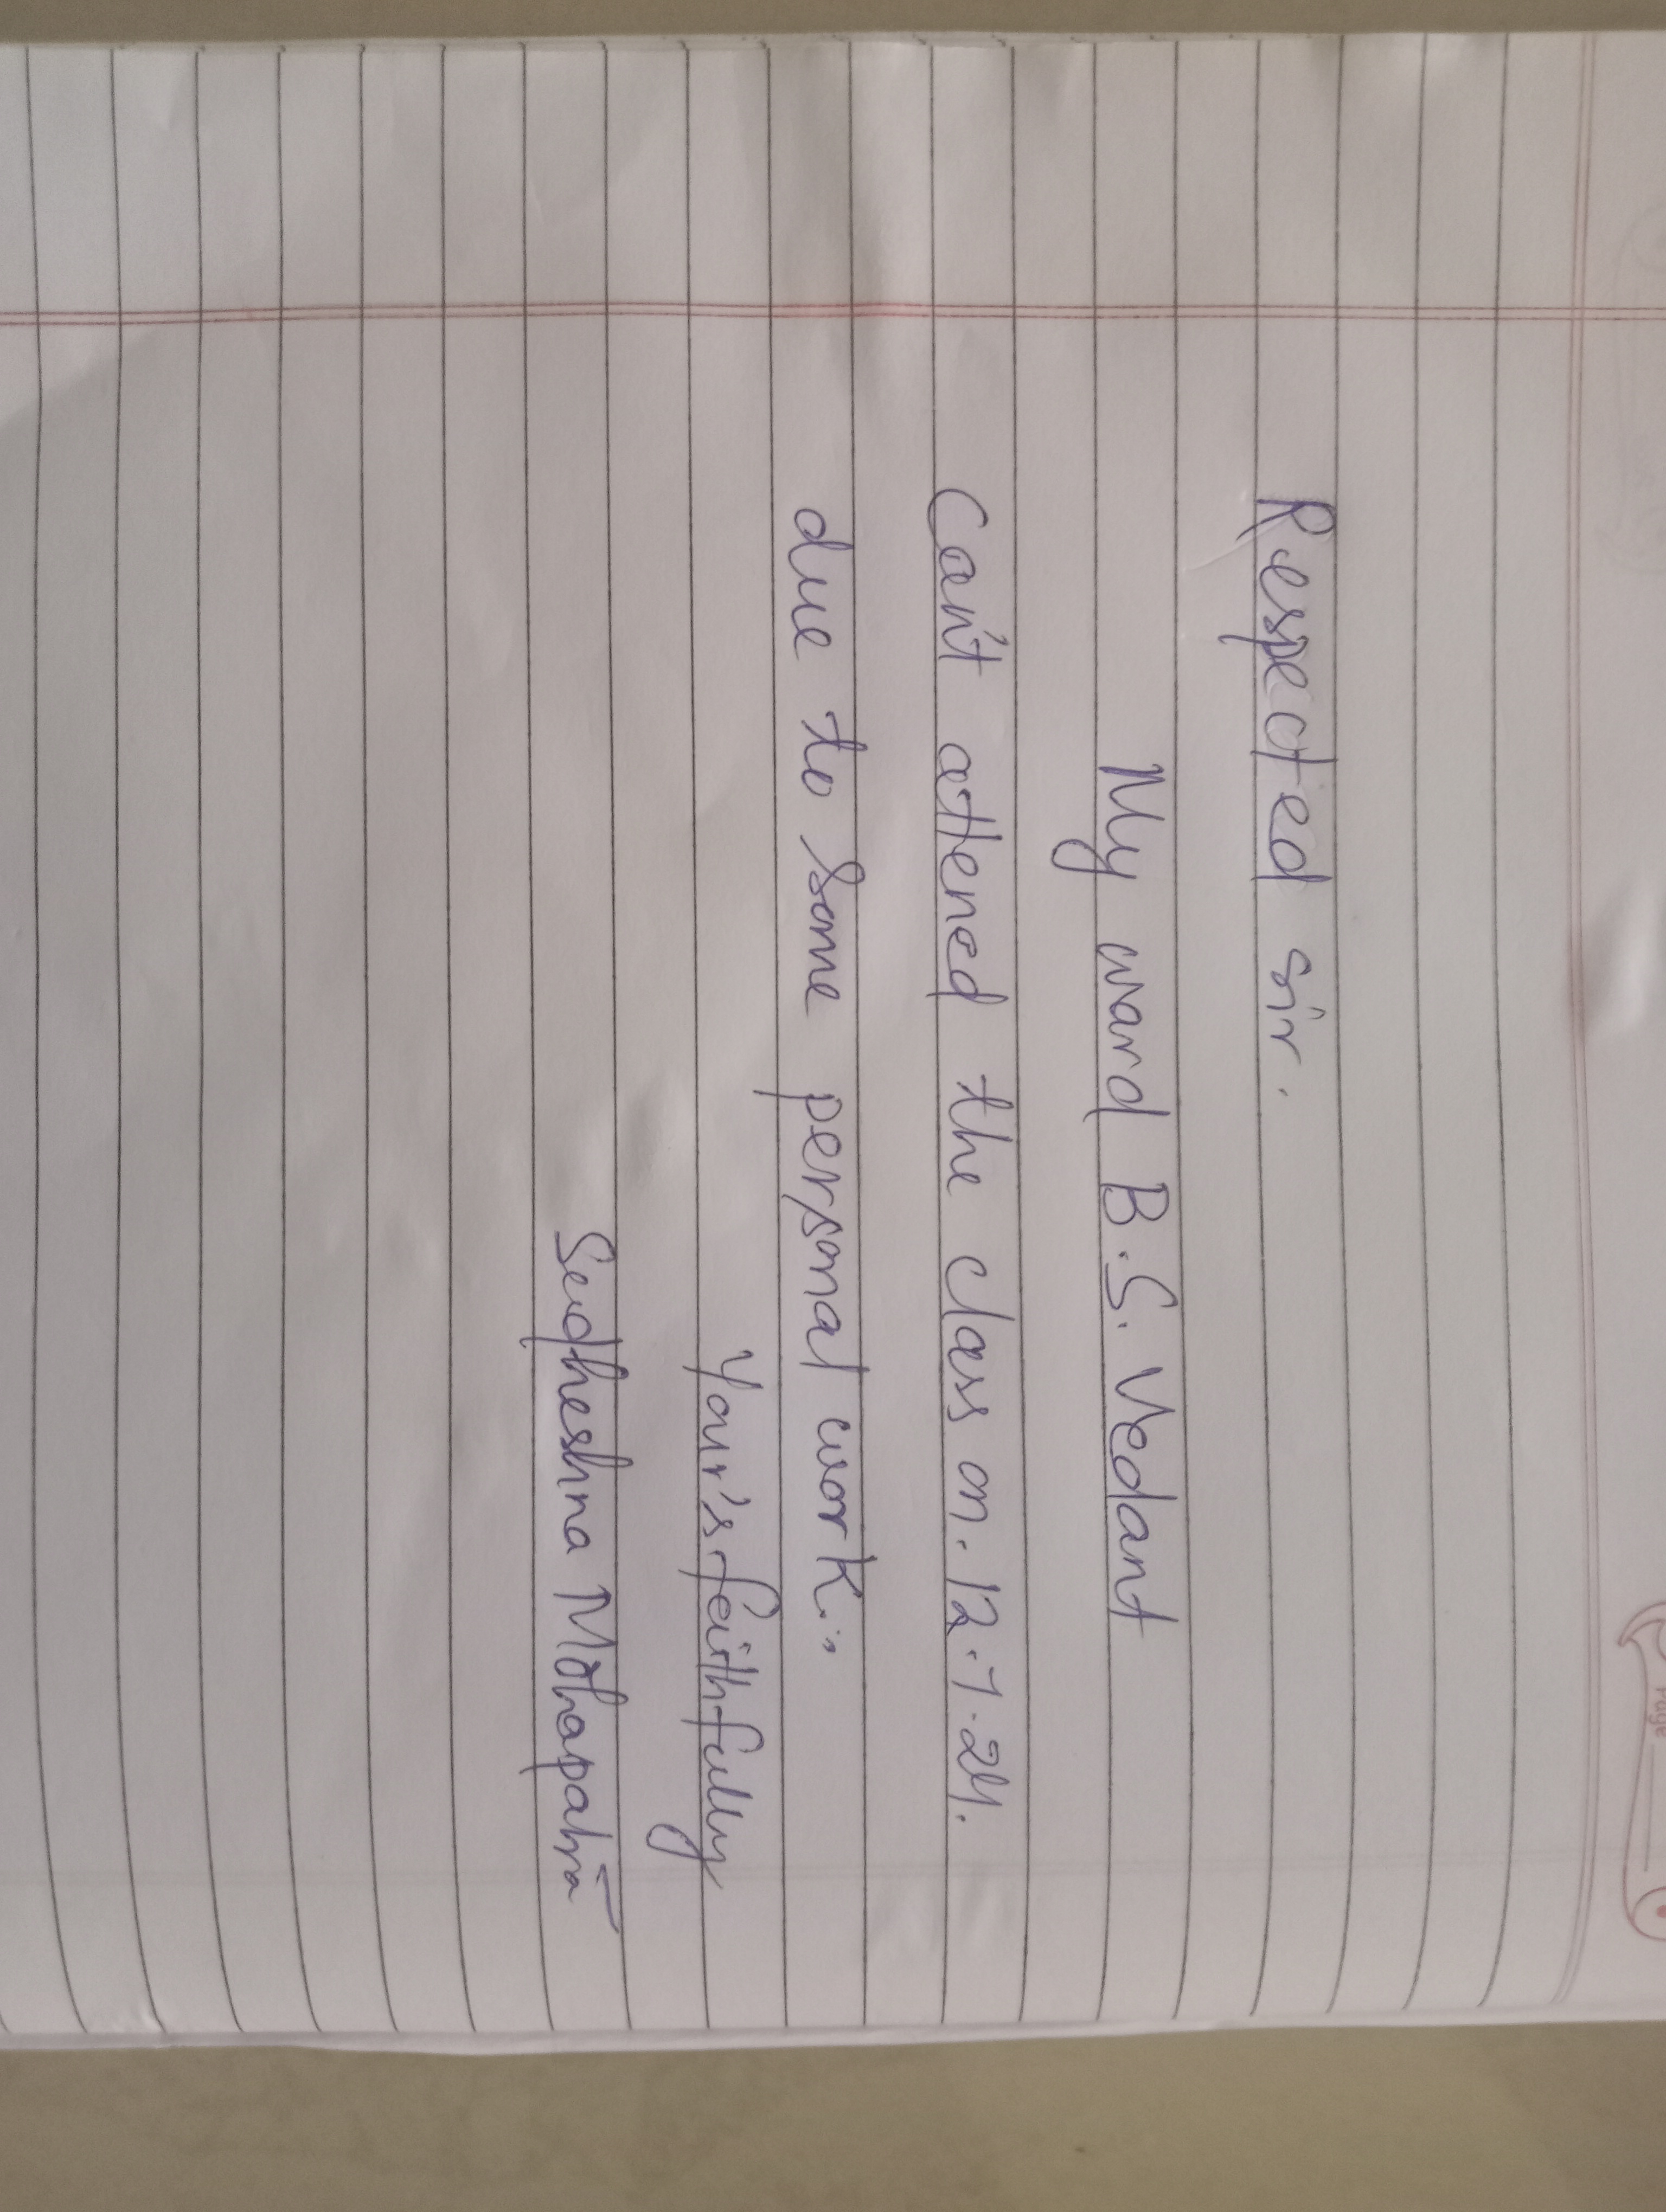 Page
Respected sir.
My ward B.S. Vedant
Can't attened the class on. 12.7.24.
due to some personal work.
Your's feithfully
Sudheshna Mohapatra